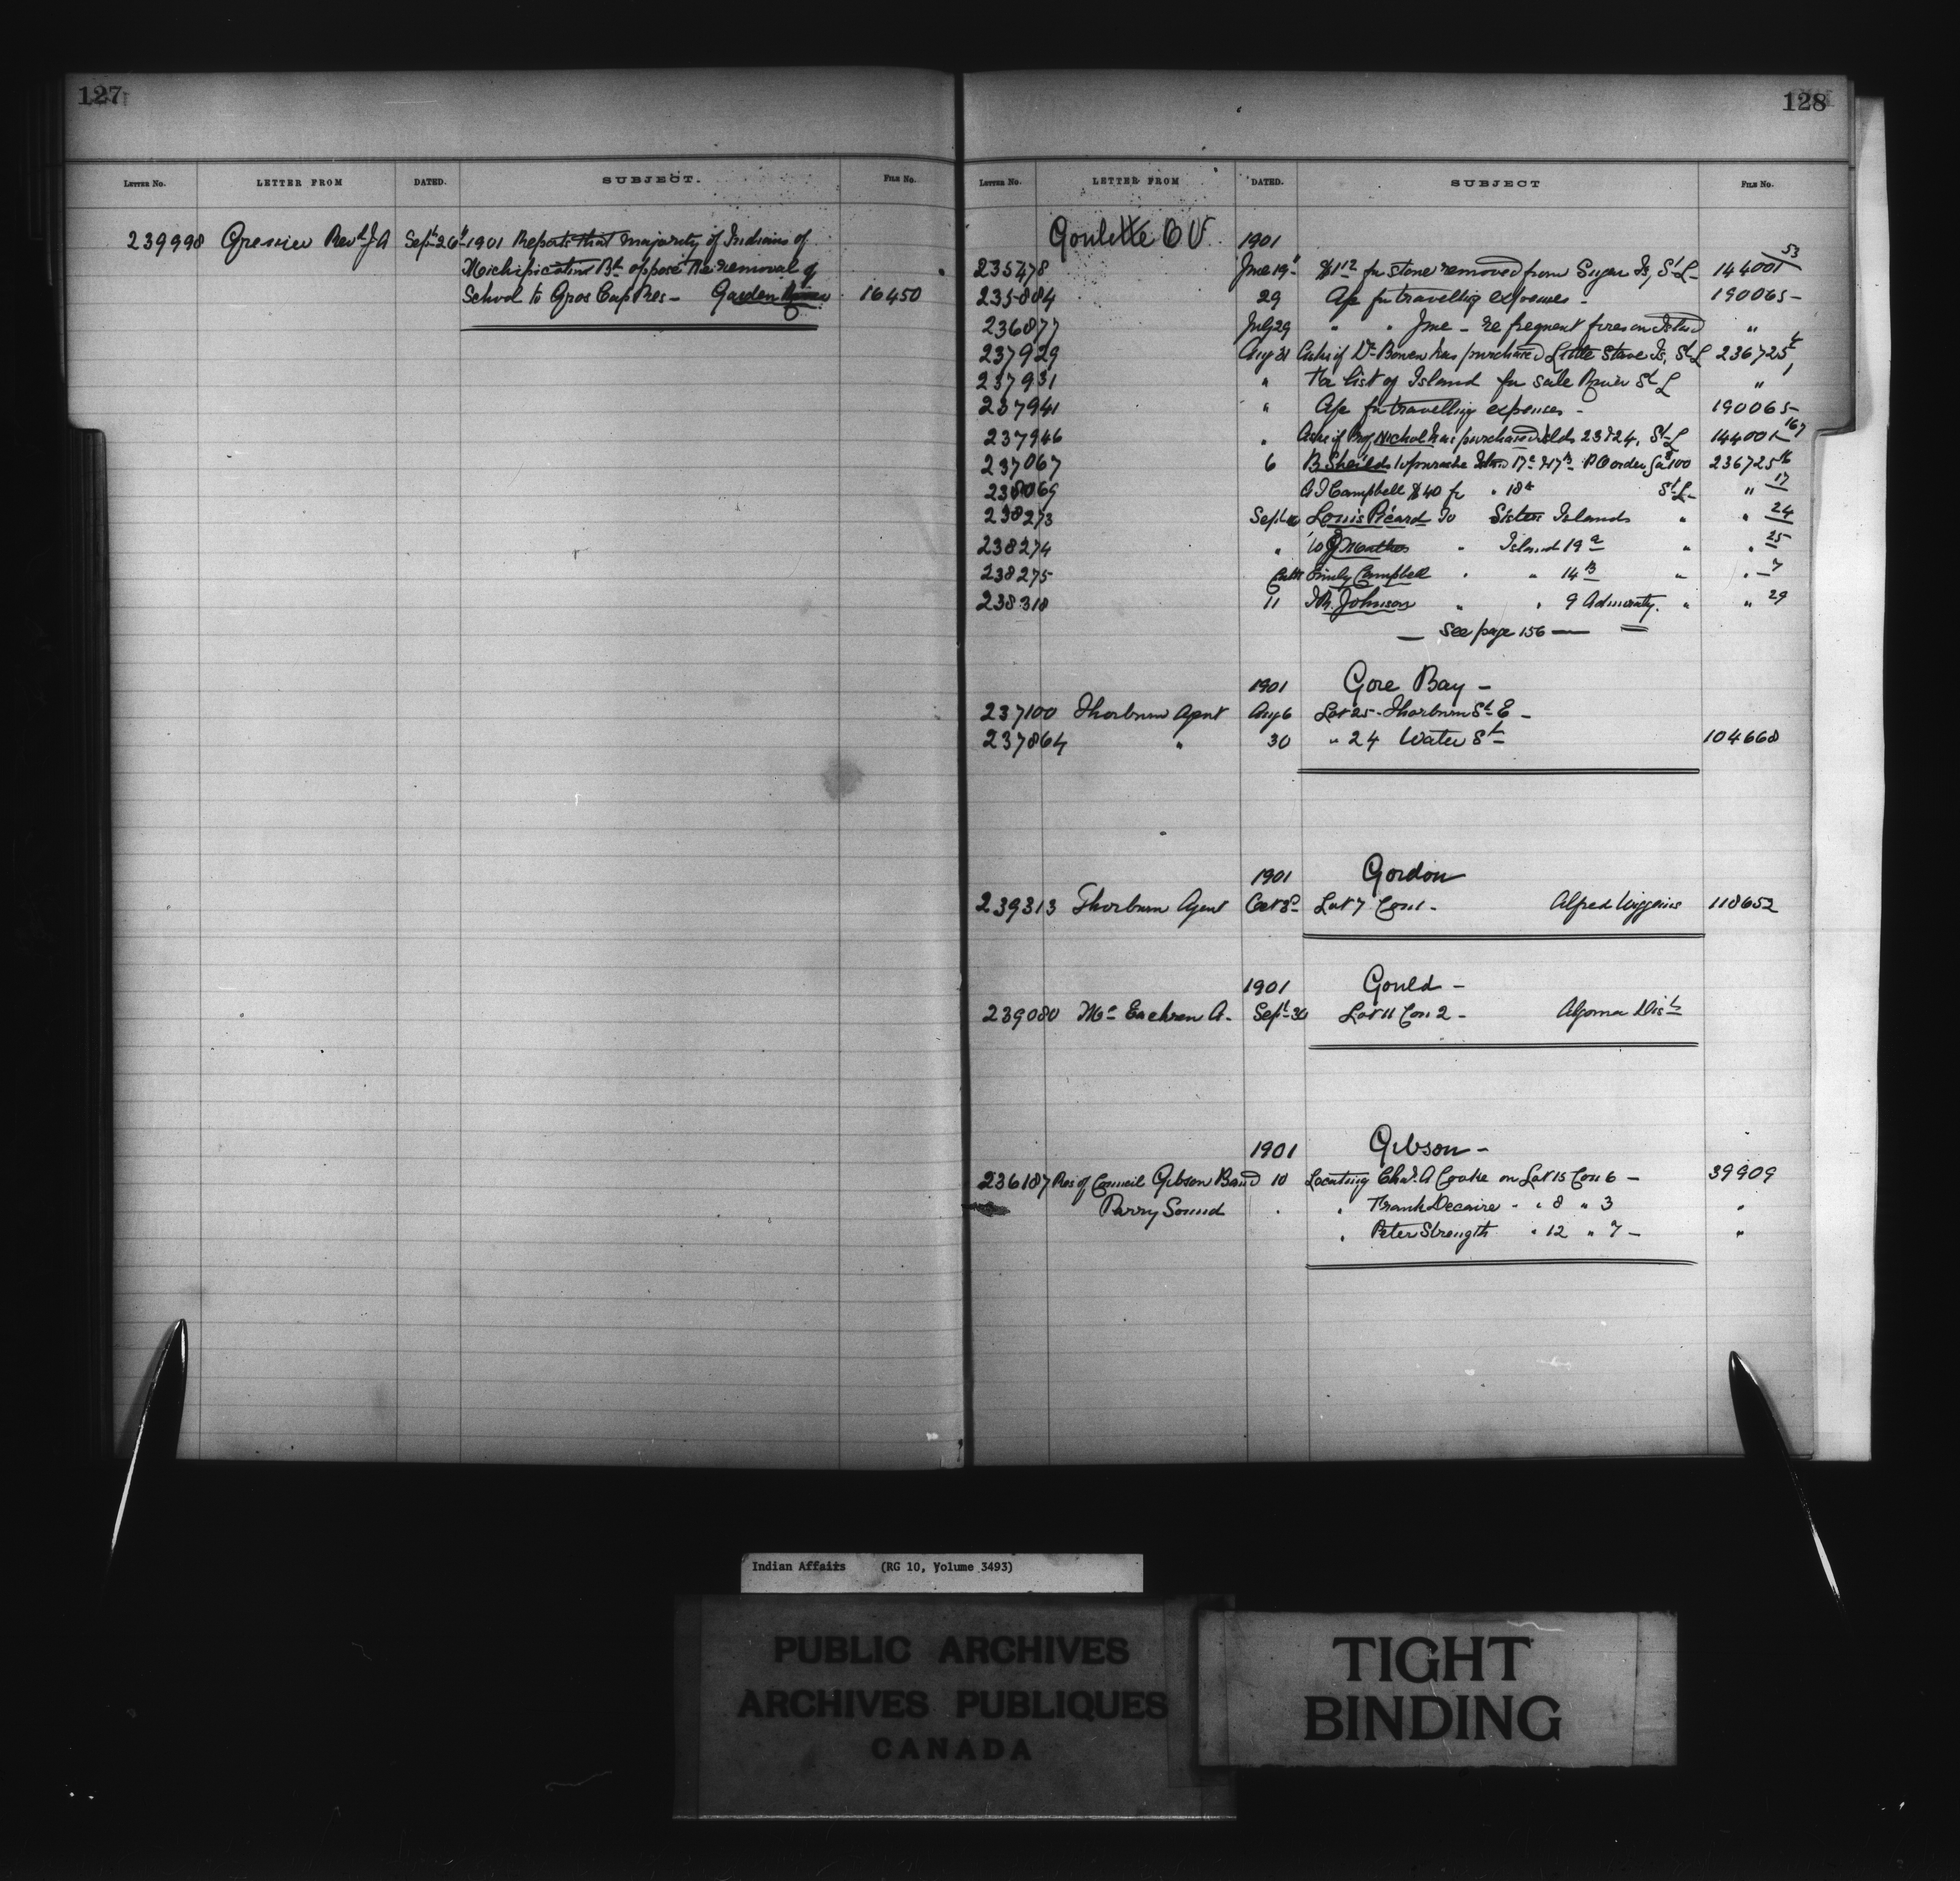 127
LETTER No. LETTER FROM DATED. SUBJECT. FILE No.
239998 Rev.d J A Sept 26th 1901 Reports that majority of Indians of
Michipicoten Bd oppose the removal of
School to Gros Cap Res - Garden River 16450
128
LETTER No. LETTER FROM DATED. SUBJECT FILE No.
Goulette O V. 1901
235478 June 19 for stone removed from Sugar Is, St L - 144001 53
235884 29 Ap for travelling expenses - 190065 -
236877 July 29 " " June - re frequent fires on Island "
237929 Aug 31 Asks if Dr Bowen has purchased Little Stave Is, St L 236725 4
237931 " For list of Island for sale River St L "
237941 " Ap for travelling expenses - 190065 -
237946 " Asks if Prof Nichol has purchased Islds 23 & 24, St L 144001 167
237067 6 B Sheilds to purchase Island 17a & 17b P O order for $100 236725 16
238069 A I Campbell $40 for " 18a St L - " 17
238273 Sept 10 Louis Picard to Sister Islands " " 24
238274 " W J " Island 19a " " 25
238275 Emily Campbell " " 14B " " 7
238318 11 Johnson " " 9 Admiralty. " " 29
— See page 156 —
1901 Gore Bay -
237100 Thorburn Agent Aug 6 Lot 25 - Thorburn St E -
237864 " 30 " 24 Water St 104668
1901 Gordon
239313 Thorburn Agent Oct 8 Lot 7 Con 1 - Alfred Wiggins 118652
1901 Gould -
239080 Mc Eachren A - Sept 30 Lot 11 Con 2 - Algoma Dist
1901 Gibson -
236187 Res of Council Gibson Band 10 Locating Chas. A Cooke on Lot 15 Con 6 - 39909
Parry Sound " " Frank Decaire - " 8 " 3 "
" Peter Strength " 12 " 7 - "
Indian Affairs (RG 10, Volume 3493)
PUBLIC ARCHIVES
ARCHIVES PUBLIQUES
CANADA
TIGHT
BINDING